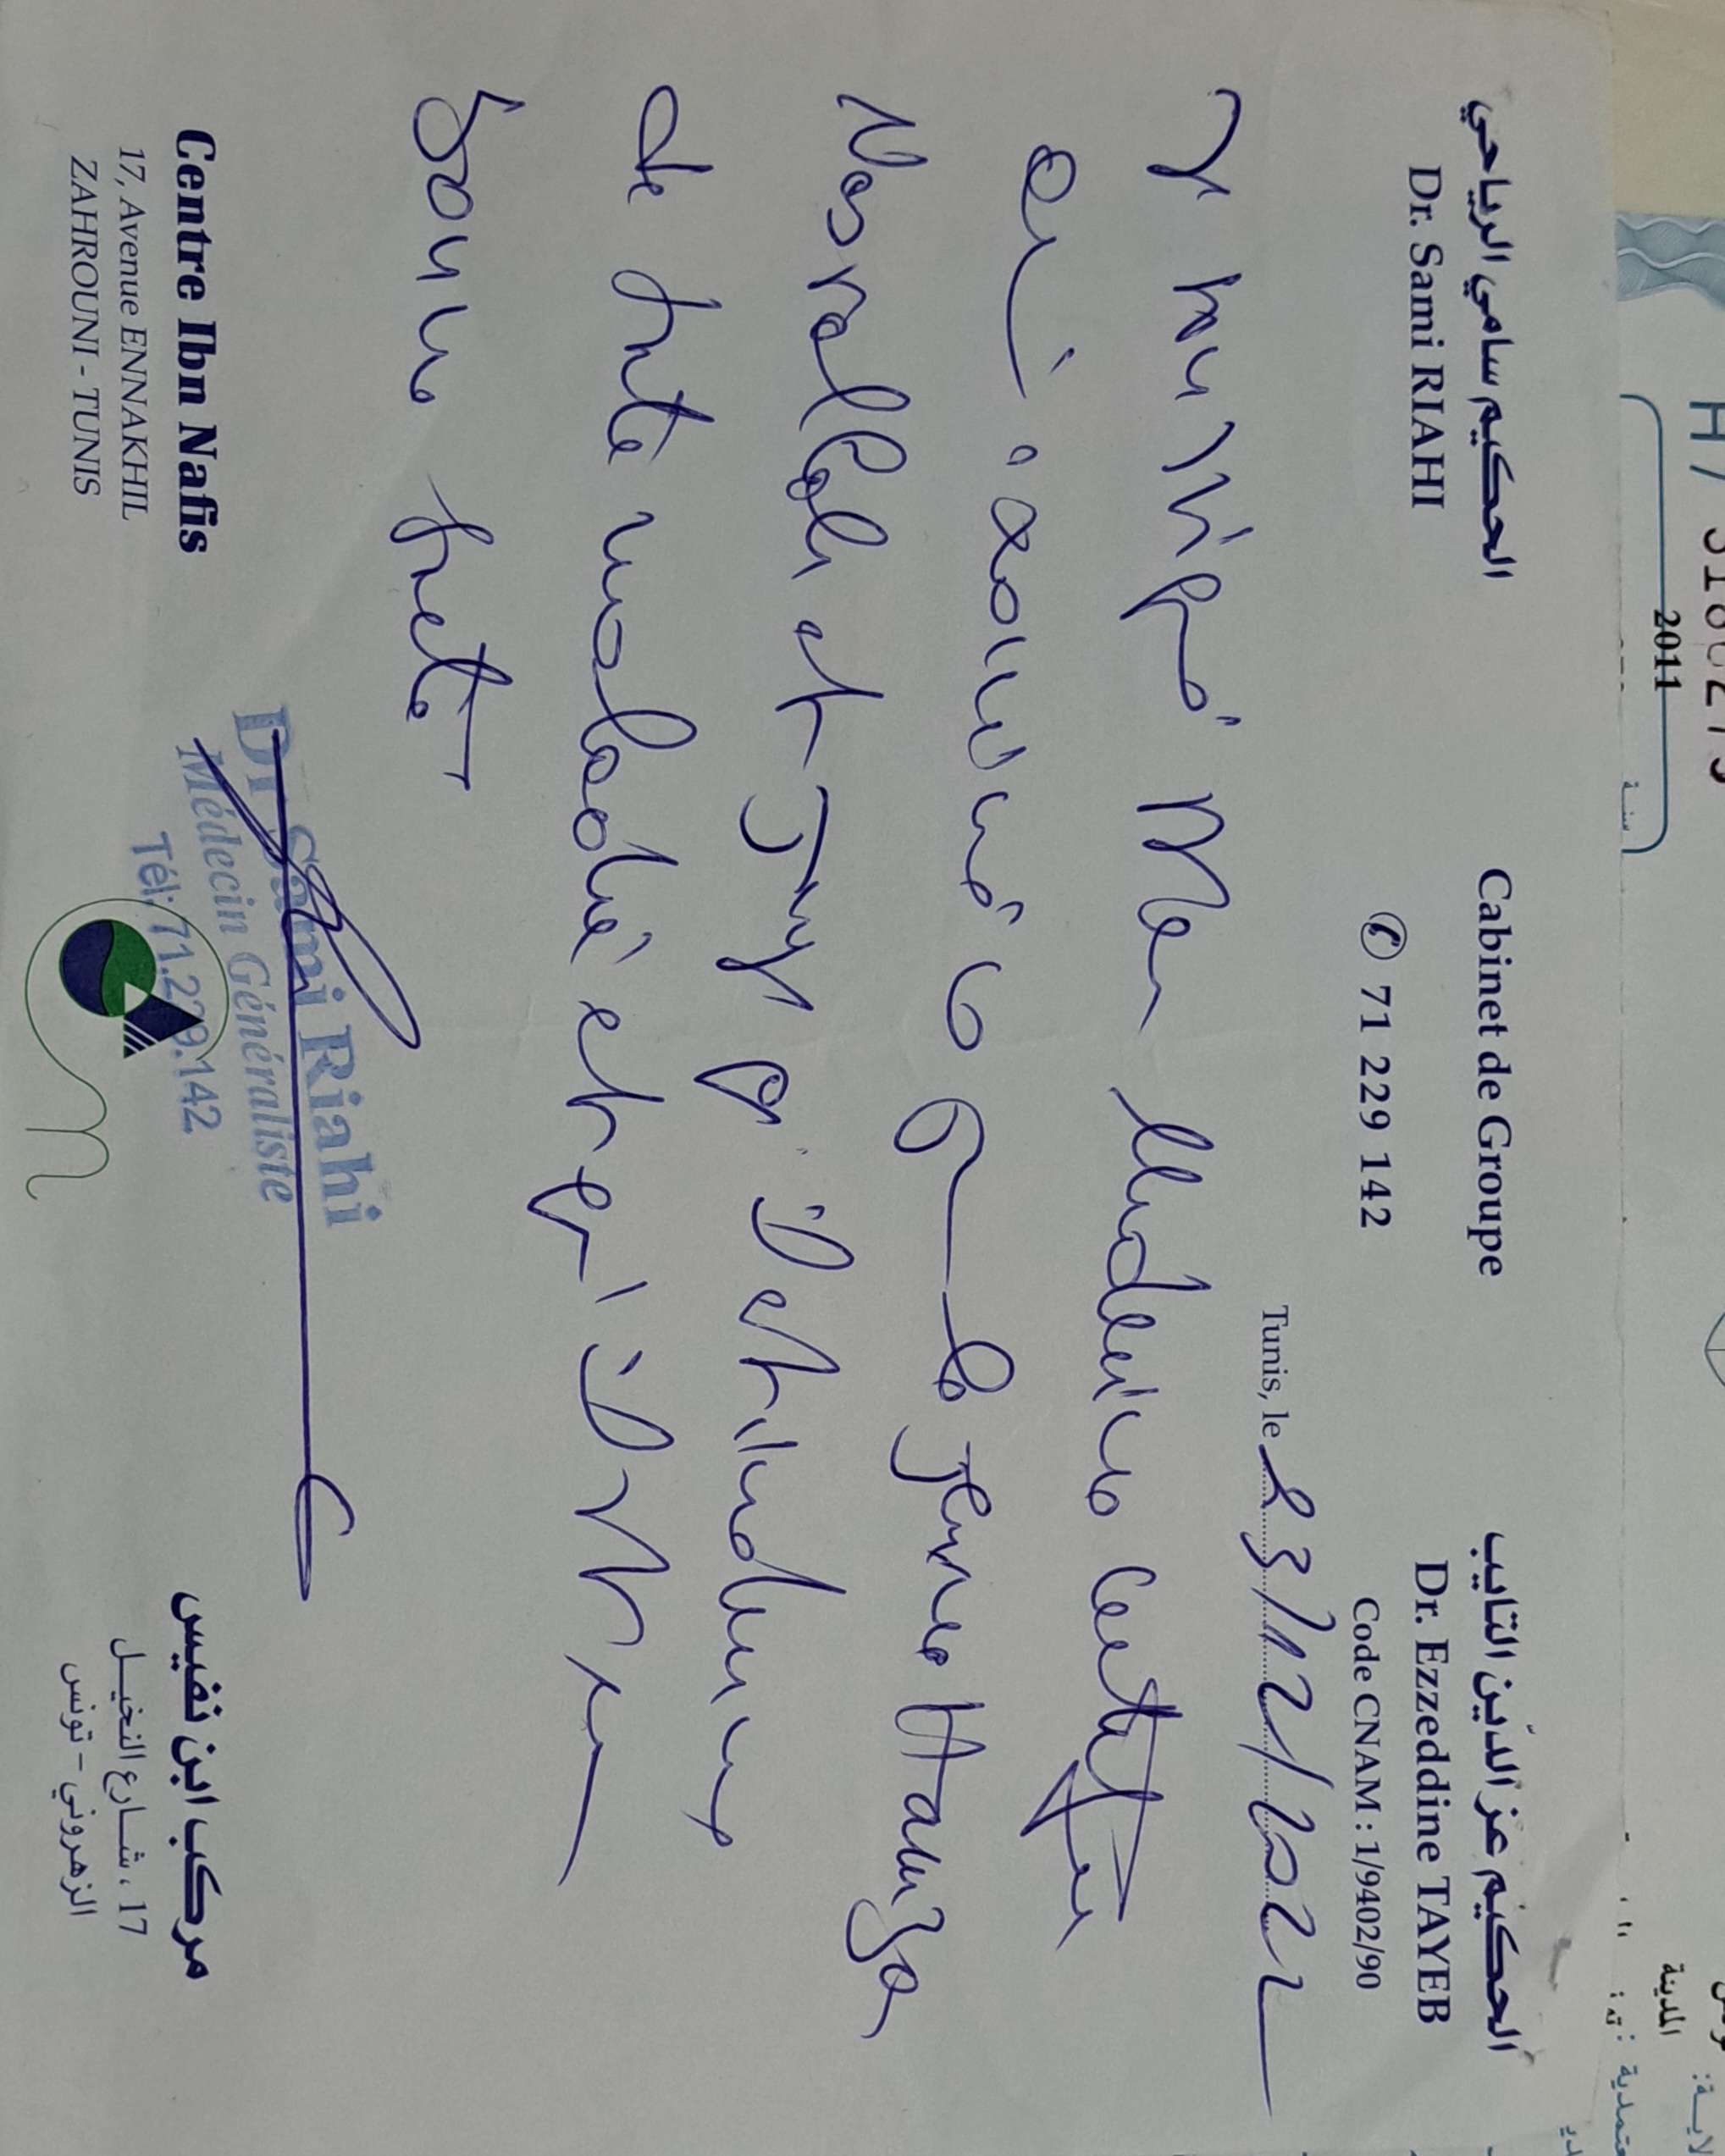 الحكيم سامي الرياحي
Dr. Sami RIAHI
Cabinet de Groupe
✆ 71 229 142
الحكيم عز الدّين التايب
Dr. Ezzeddine TAYEB
Code CNAM : 1/9402/90
Tunis, le 23/12/2022
Je soussigné Mer Médecin Certifie
avoir examiné le jeune Hamza
Nasrallah et Juge qu'il est indemne
de toute maladie et qu'il est en
bonne santé
Dr Sami Riahi
Médecin Généraliste
Tél: 71.229.142
Centre Ibn Nafis
17, Avenue ENNAKHIL
ZAHROUNI - TUNIS
مركب ابن نفيس
17 ، شارع النخيل
الزهروني - تونس
2011
سنة
المدينة